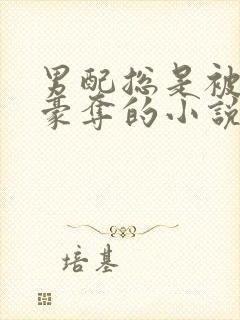 男配总是被
豪夺的小说
培基